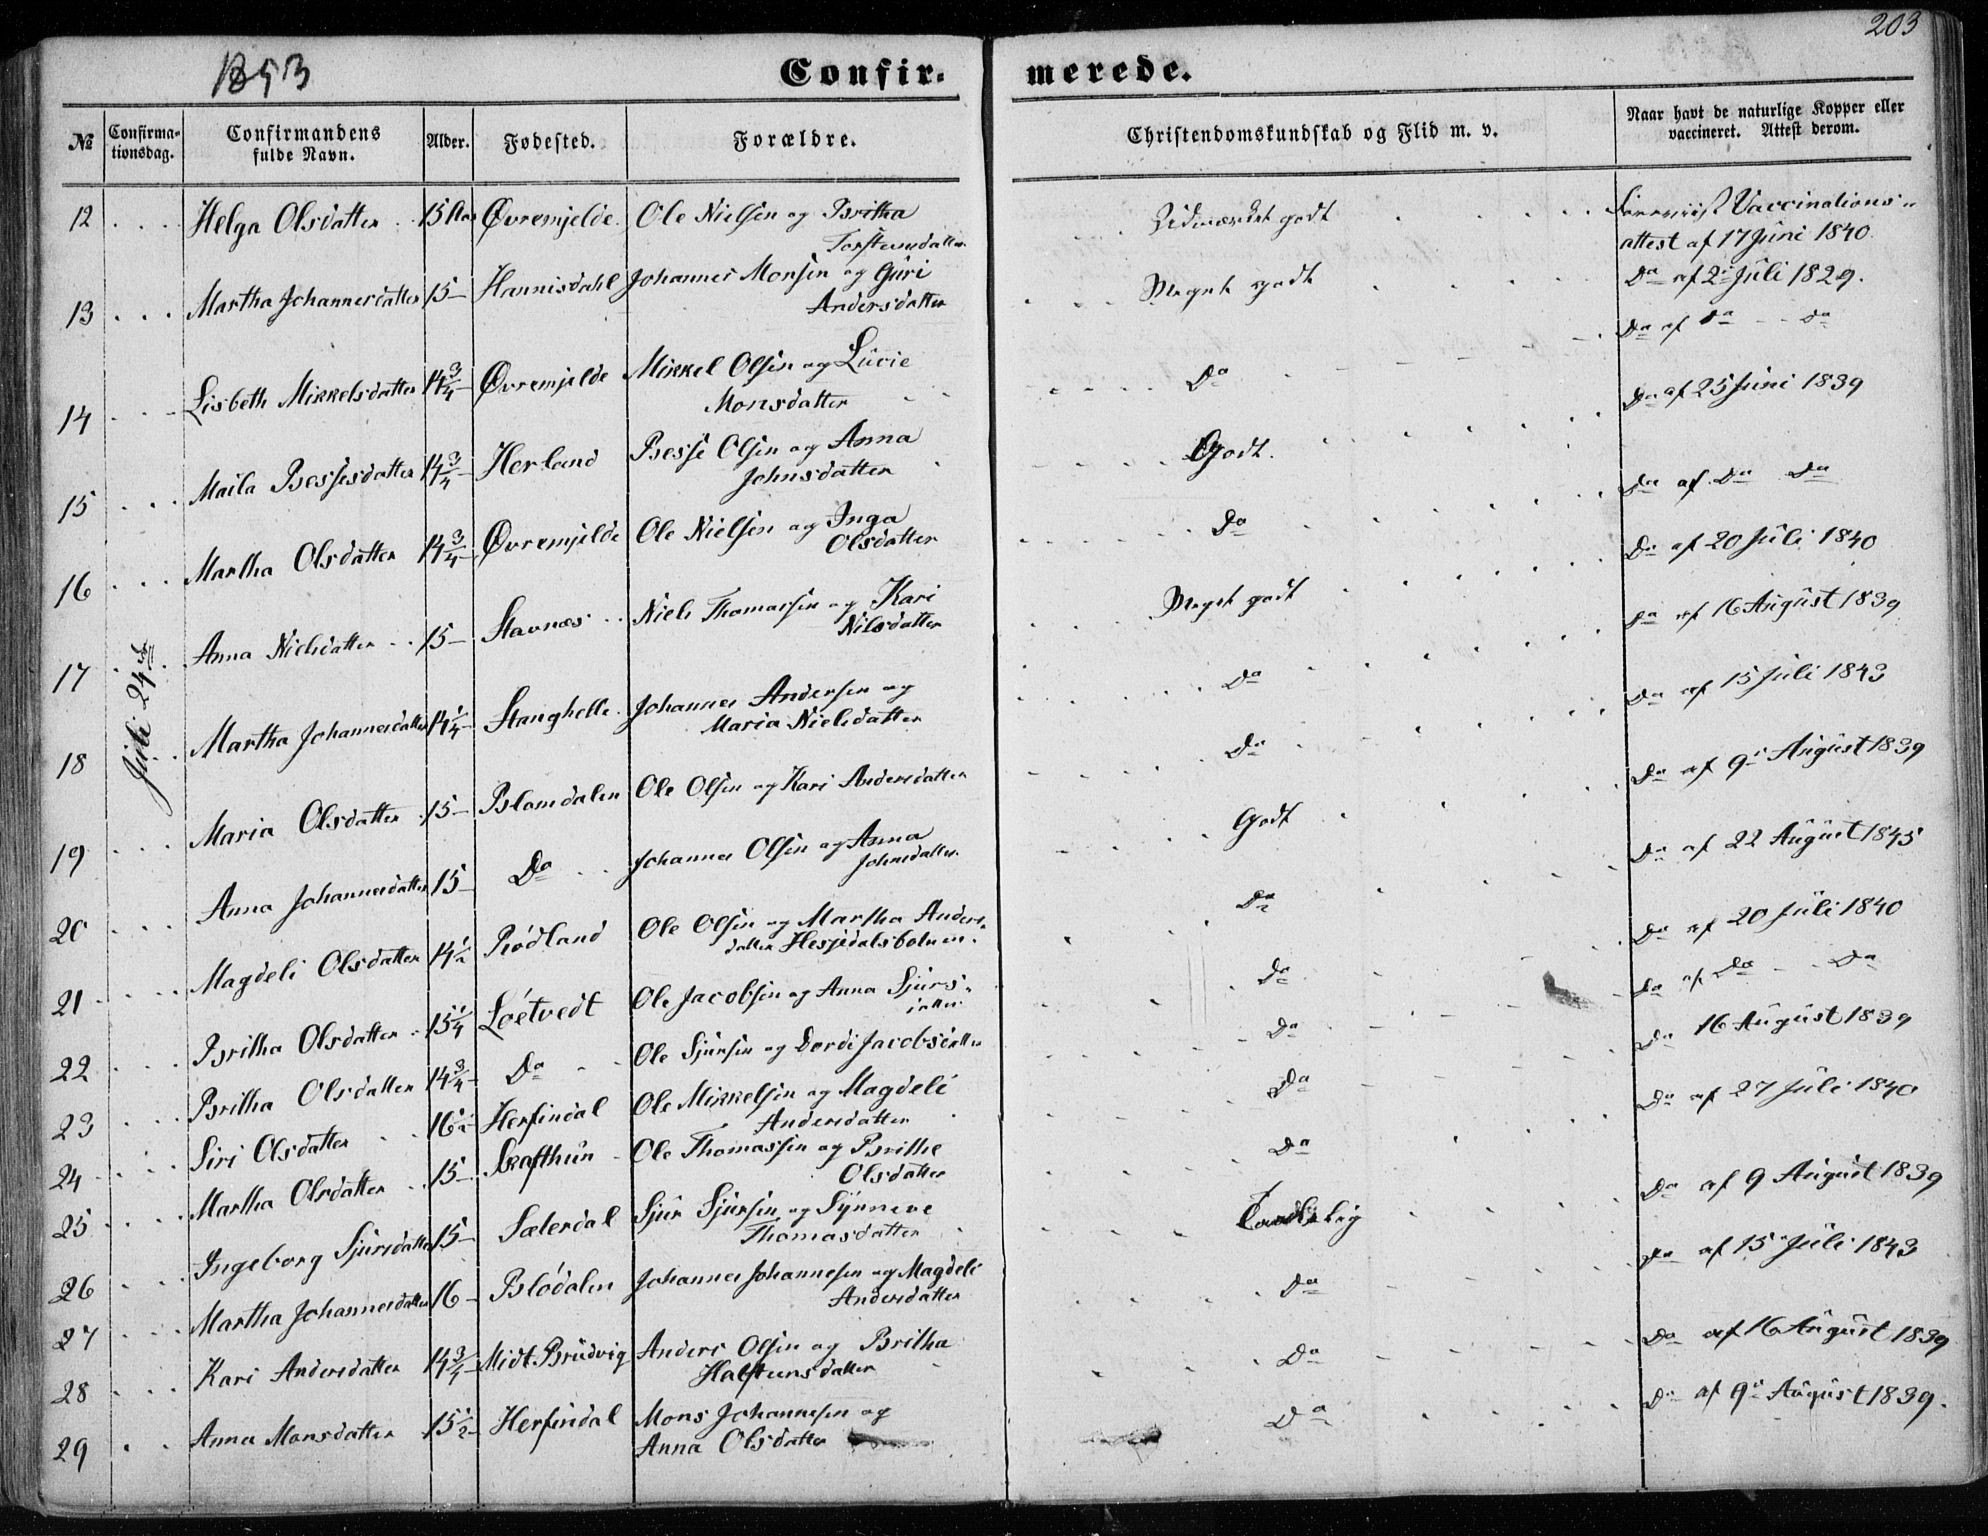 203
1853
Confir- merede.
№ Confirma-tionsdag. Confirmandens fulde Navn. Alder. Fødested. Forældre. Christendomskundskab og Flid m. v. Naar havt de naturlige Kopper eller vaccineret. Attest derom.
Juli 24de
12 Helga Olsdatter 15 Aar Øvremjelde Ole Nielsen og Britha Torstensdatter Udmærket godt Vaccinations-attest af 17 Juni 1840.
13 Martha Johannesdatter 15 Hannisdahl Johannes Monsen og Guri Andersdatter Meget godt Do af 2 Juli 1829.
14 Lisbeth Mikkelsdatter 14 3/4 Øvremjelde Mikkel Olsen og Lucie Monsdatter Do Do af do Do
15 Maila Bessesdatter 14 3/4 Herland Besse Olsen og Anna Johnsdatter Godt. Do af 25 Juni 1839
16 Martha Olsdatter 14 3/4 Øvremjelde Ole Nielsen og Inga Olsdatter Do Do af Do Do
17 Anna Nielsdatter 15 Stavnæs Niels Thomassen og Kari Nilsdatter Meget godt Do af 20 Juli 1840
18 Martha Johannesdatter 14 1/4 Stanghelle Johannes Andersen og Maria Nielsdatter Do Do af 16 August 1839
19 Maria Olsdatter 15 Blomdalen Ole Olsen og Kari Andersdatter Do Do af 15 Juli 1843
20 Anna Johannesdatter 15 Do Johannes Olsen og Anna Johnsdatter Godt Do af 9 August 1839
21 Magdeli Olsdatter 14 1/2 Rødland Ole Olsen og Martha Andersdatter Hesjedalsbotnen. Do Do af 22 August 1845
22 Britha Olsdatter 15 1/4 Løetvedt Ole Jacobsen og Anna Sjursdatter Do Do af 20 Juli 1840
23 Britha Olsdatter 14 3/4 Do Ole Sjursen og Dordi Jacobsdatter Do Do af Do Do
24 Siri Olsdatter 16 1/2 Herfindal Ole Mikkelsen og Magdeli Andersdatter Do Do 16 August 1839
25 Martha Olsdatter 15 Skafthun Ole Thomassen og Brithe Olsdatter Do Do af 27 Juli 1840
26 Ingeborg Sjursdatter 15 Sælerdal Sjur Sjursen og Synneve Thomasdatter Taalelig Do af 9 August 1839
27 Martha Johannesdatter 16 Blødalen Johannes Johannesen og Magdeli Andersdatter Do Do af 15 Juli 1843
28 Kari Andersdatter 14 3/4 Midt Brudvig Anders Olsen og Britha Halstensdatter Do Do af 16 August 1839
29 Anna Monsdatter 15 1/2 Herfindal Mons Johannesen og Anna Olsdatter Do Do af 9 August 1839.